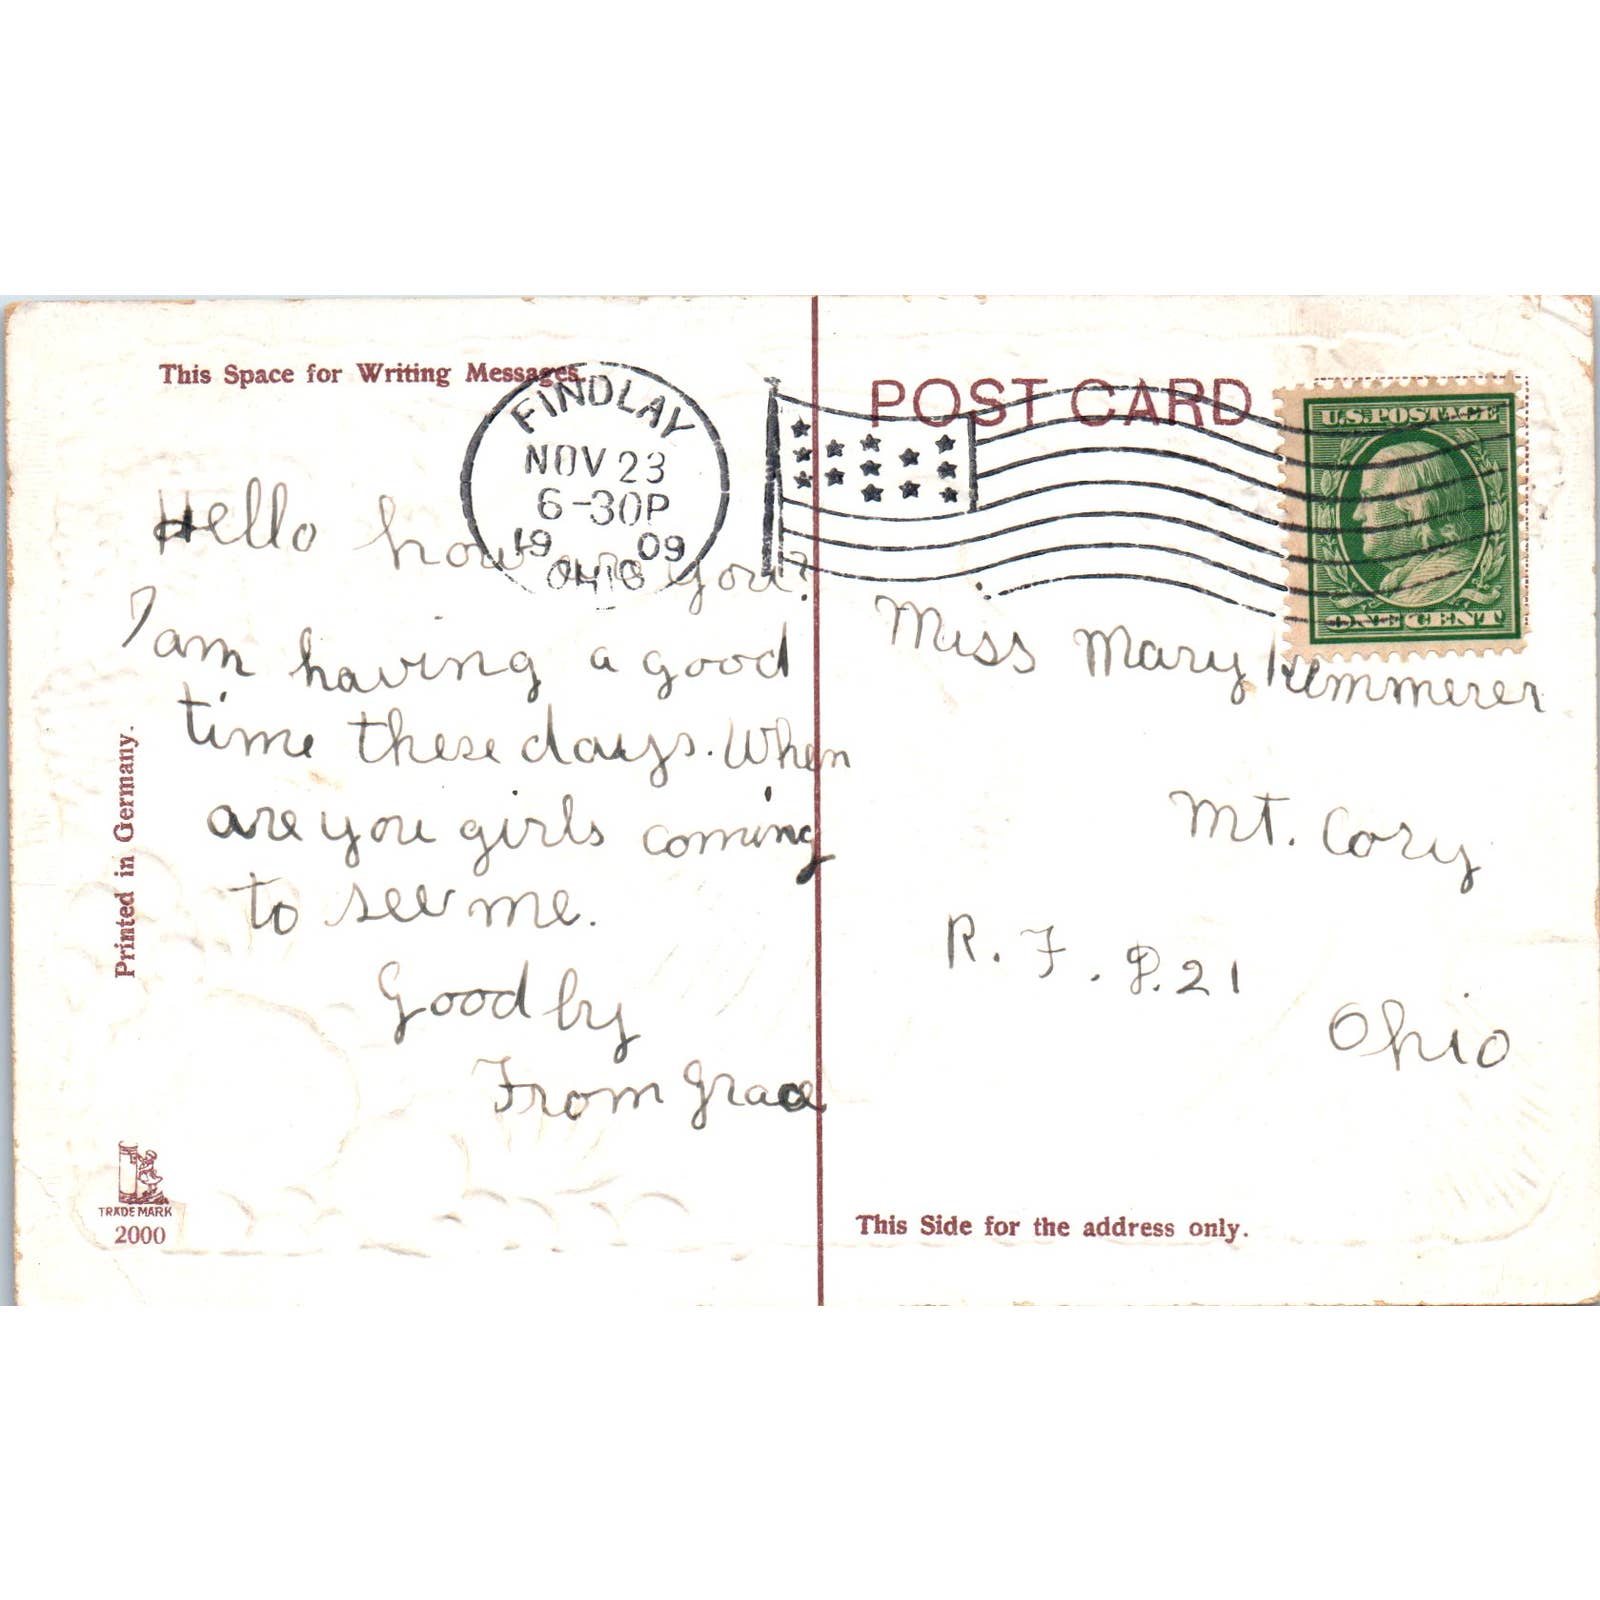 This Space for Writing Messages.
FINDLAY
NOV 23
6-30P
19 09
OHIO
POST CARD
U.S. POSTAGE
ONE CENT
Hello how you?
I am having a good
time these days. When
are you girls coming
to see me.
Good by
From Grace
Miss Mary Kemmerer
Mt. Cory
R. F. D. 21
Ohio
Printed in Germany.
TRADE MARK
2000
This Side for the address only.